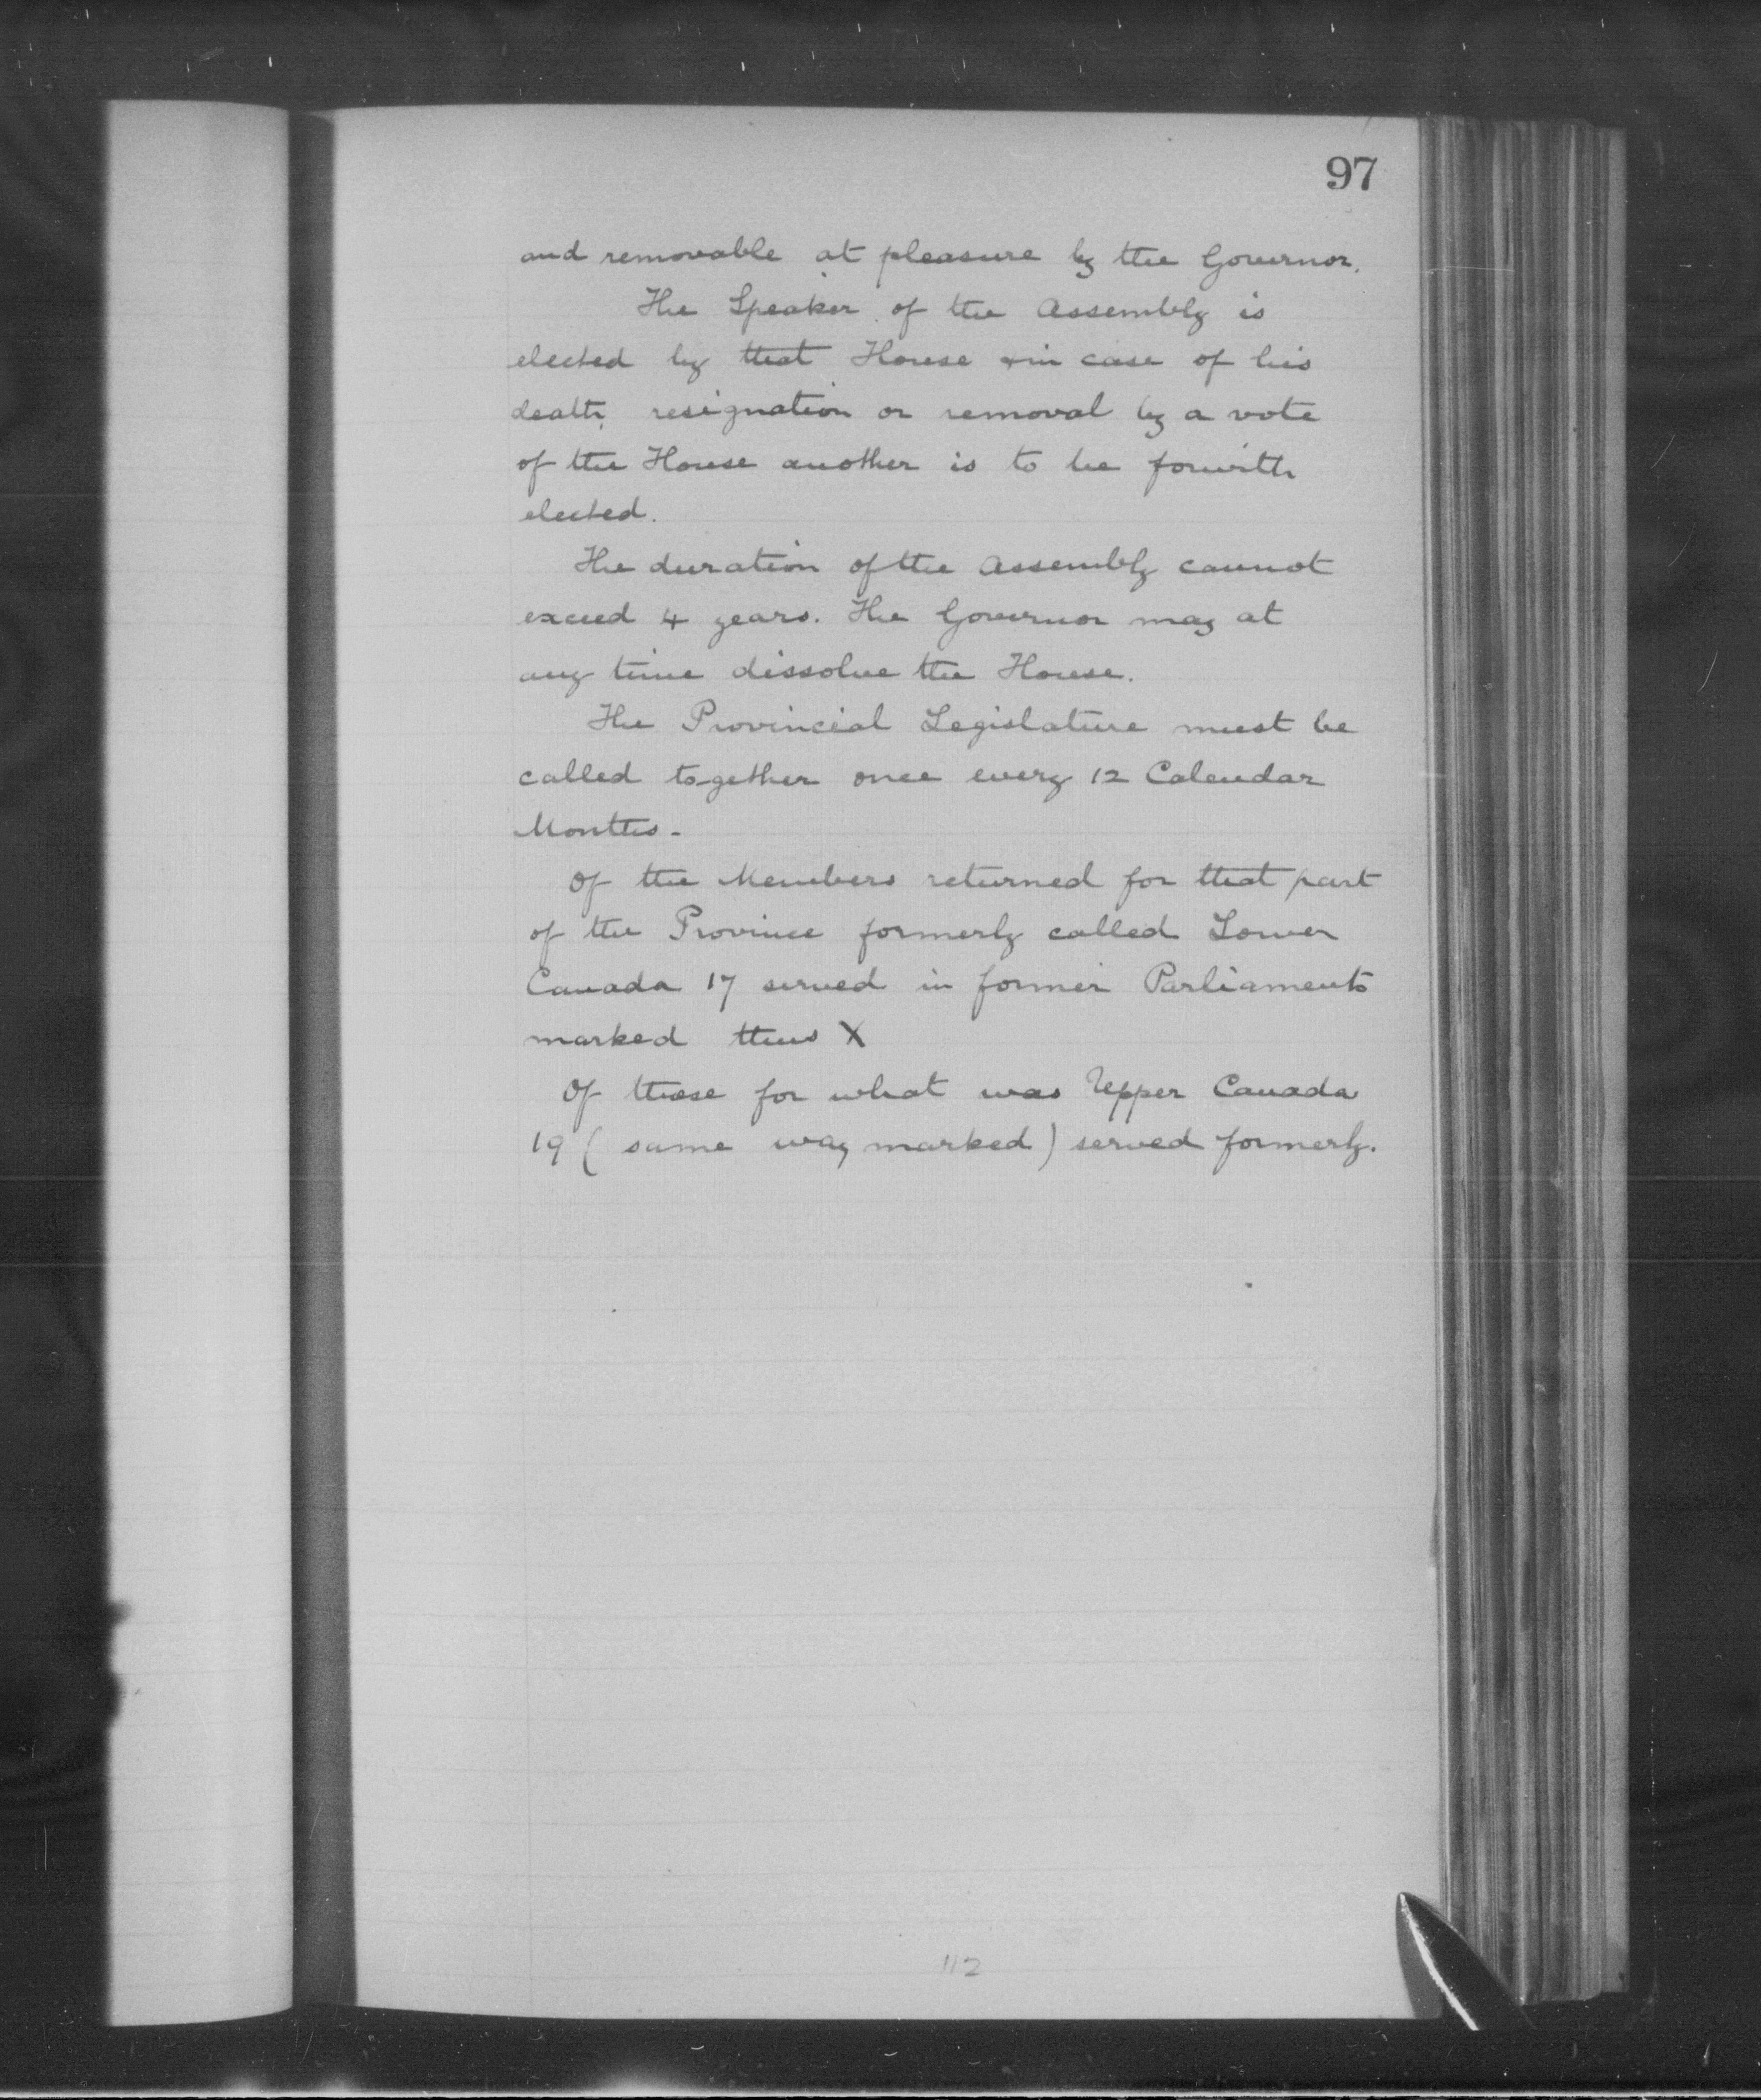 97
and removable at pleasure by the Governor.
The Speaker of the Assembly is
elected by that House & in case of his
death, resignation or removal by a vote
of the House another is to be forwith
elected.
The duration of the Assembly cannot
exceed 4 years. The Governor may at
any time dissolve the House.
The Provincial Legislature must be
called together once every 12 Calendar
Months.
Of the Members returned for that part
of the Province formerly called Lower
Canada 17 served in former Parliaments
marked thus X
Of those for what was Upper Canada
19 (same way marked) served formerly.
112